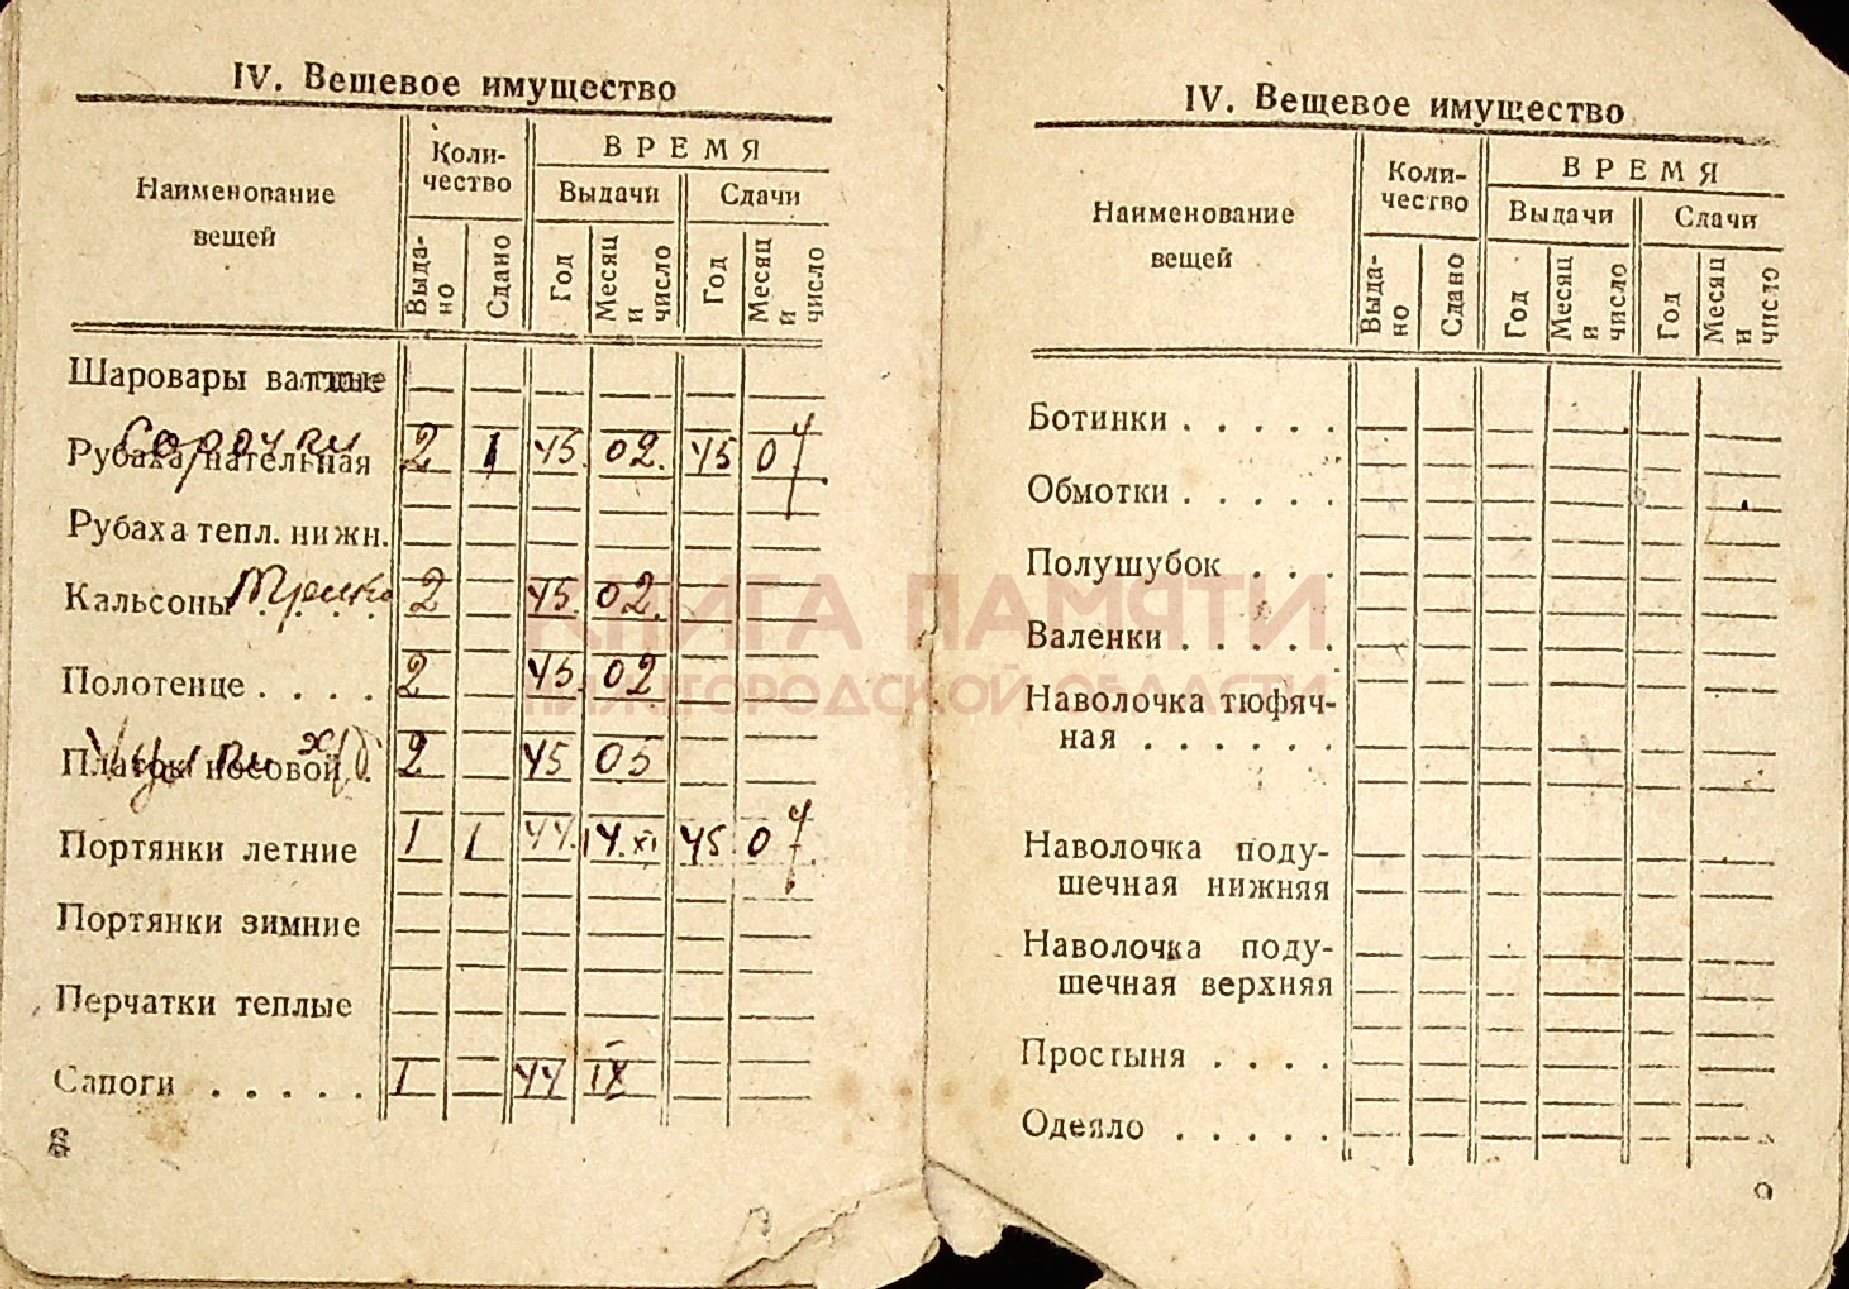 IV. Вещевое имущество
Наименование вещей
Коли-
чество
ВРЕМЯ
Выдачи
Сдачи
Выда-
но
Сдано
Год
Месяц
и
число
Год
Месяц
и
число
Шаровары ватные
Сорочки
Рубаха нательная 2 1 45 02. 45 07
Рубаха тепл. нижн.
Кальсоны . . . . 2 45. 02.
Полотенце . . . . 2 45 02
х/б
Платок носовой . 2 45 05
Портянки летние 1 1 44. 14.XI 45 07
Портянки зимние
Перчатки теплые
Сапоги . . . . . I 44 IX
8
IV. Вещевое имущество
Наименование вещей
Коли-
чество
ВРЕМЯ
Выдачи
Сдачи
Выда-
но
Сдано
Год
Месяц
и
число
Год
Месяц
и
число
Ботинки . . . . .
Обмотки . . . . .
Полушубок . . .
Валенки . . . . .
Наволочка тюфяч-
ная . . . . . .
Наволочка поду-
шечная нижняя
Наволочка поду-
шечная верхняя
Простыня . . . .
Одеяло . . . . .
9
КНИГА ПАМЯТИ
НИЖЕГОРОДСКОЙ ОБЛАСТИ